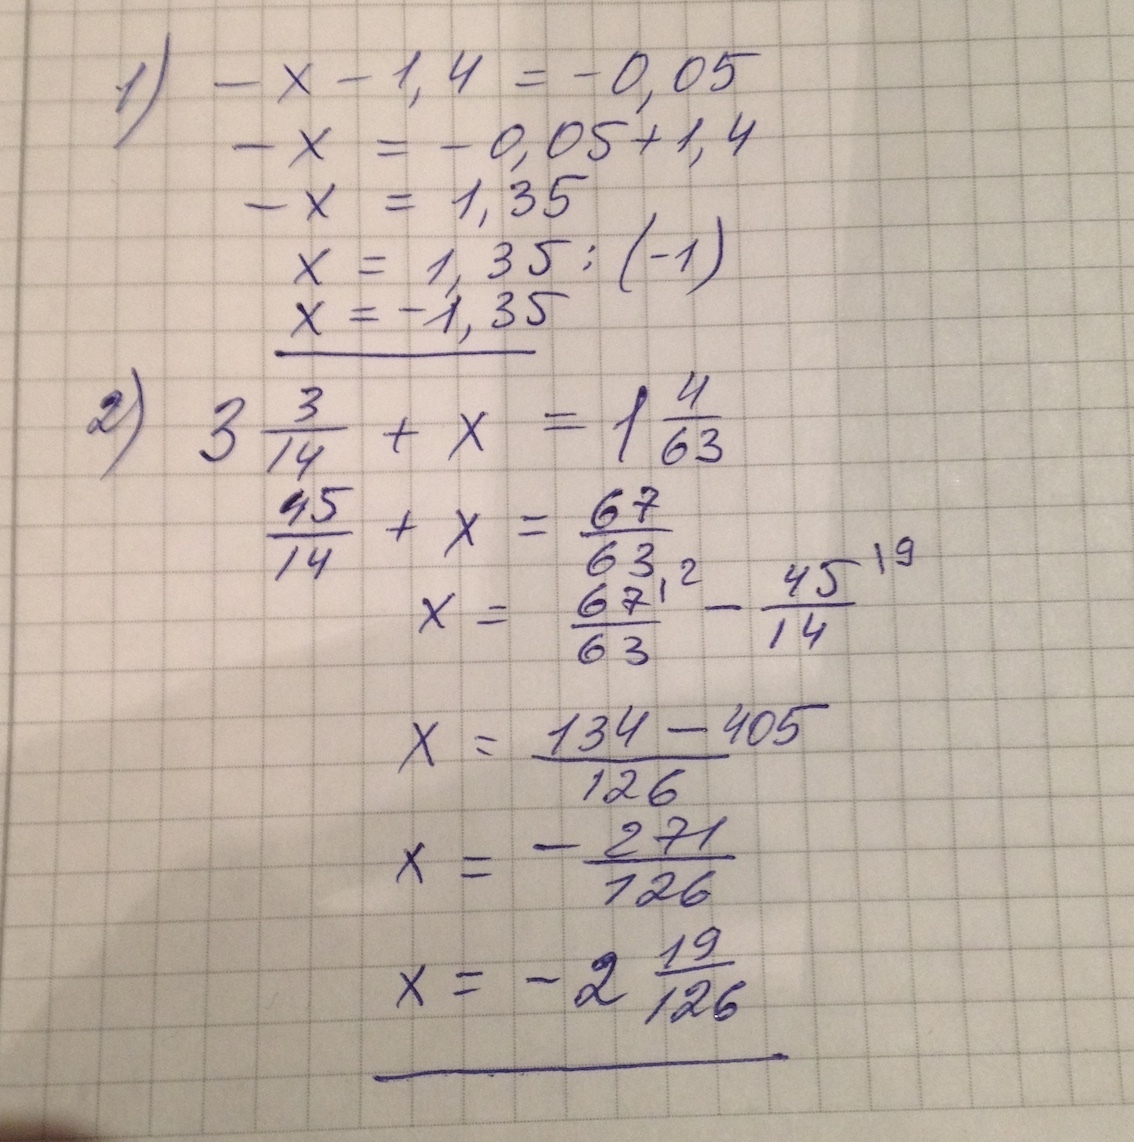 1) -x-1,4 = -0,05
-x = -0,05+1,4
-x = 1,35
x = 1,35:(-1)
x = -1,35
2) 3 3/14 + x = 1 4/63
45/14 + x = 67/63
x = 67/63 |2 - 45/14 |9
x = 134-405/126
x = - 271/126
x = -2 19/126